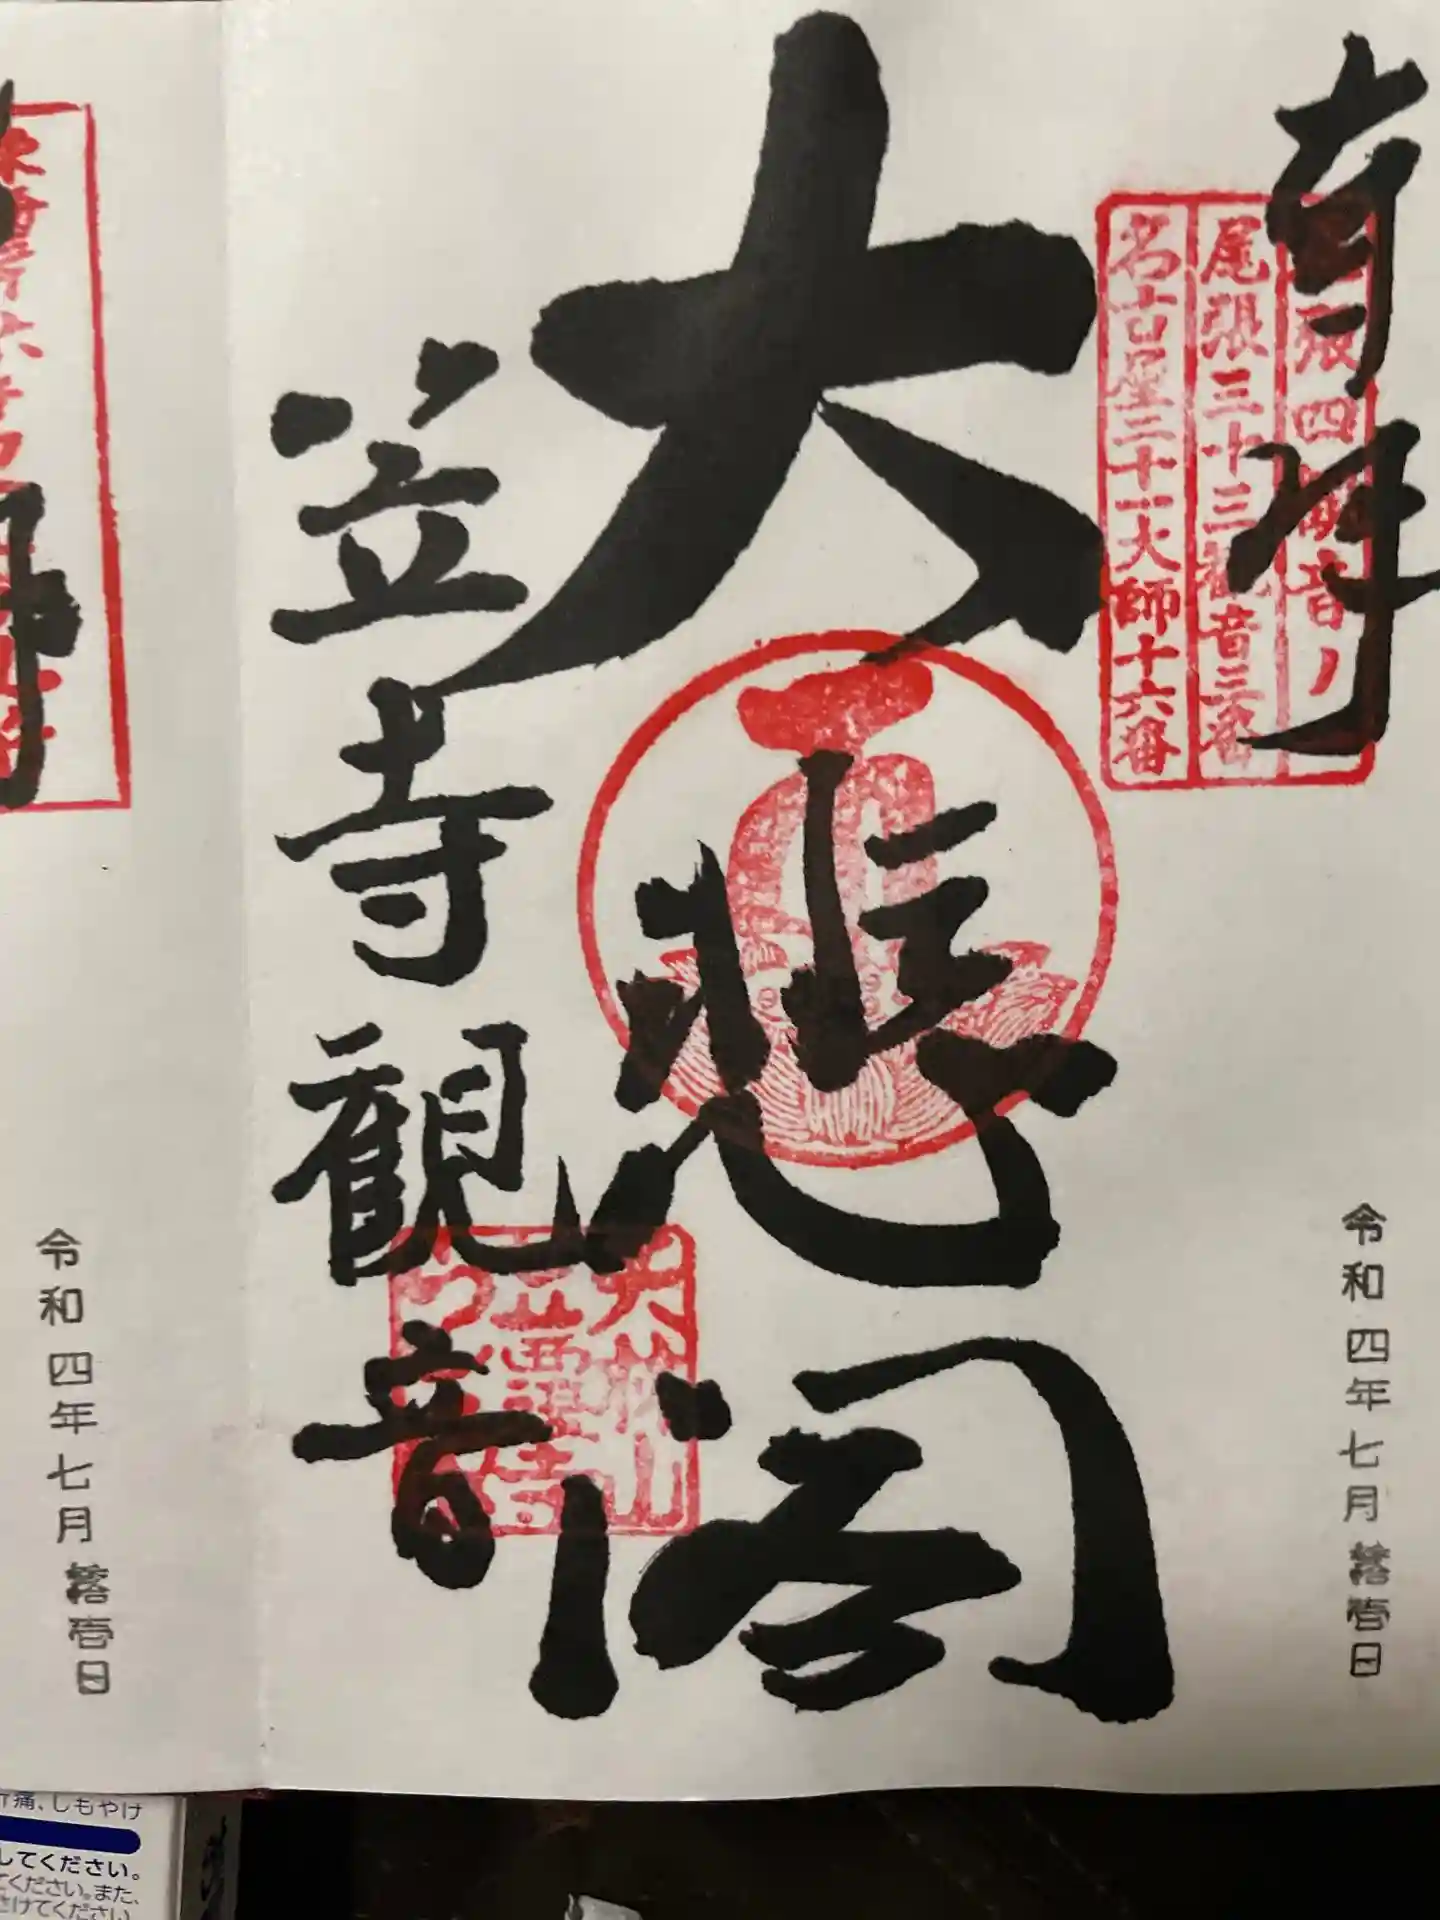 奉拝
尾張四観音ノ一
尾張三十三観音三番
名古屋二十一大師十六番
大悲閣
笠寺觀音
令和四年七月拾壱日
令和四年七月拾壱日
痛、しもやけ
してください。
てください。また、
さけてください